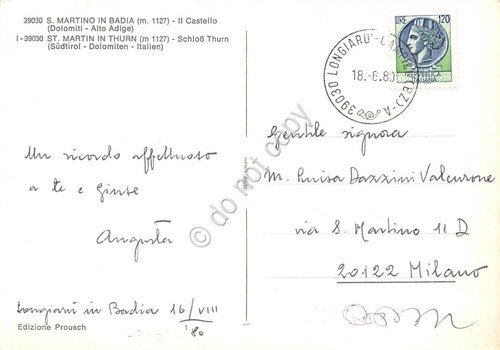 39030 S. MARTINO IN BADIA (m. 1127) - Il Castello
(Dolomiti - Alto Adige)
I-39030 ST. MARTIN IN THURN (m. 1127) - Schloß Thurn
(Südtirol - Dolomiten - Italien)
LIRE 120
REPVBBLICA
ITALIANA
39030 LONGIARU'
18.-8.80
do not copy
Un ricordo affettuoso
a te e
Augusta
Longiarù in Badia 16/VIII
80
Edizione Prousch
Gentile signora
M. Luisa Dazzini Valcurone
via S. Martino 11 D
20122 Milano